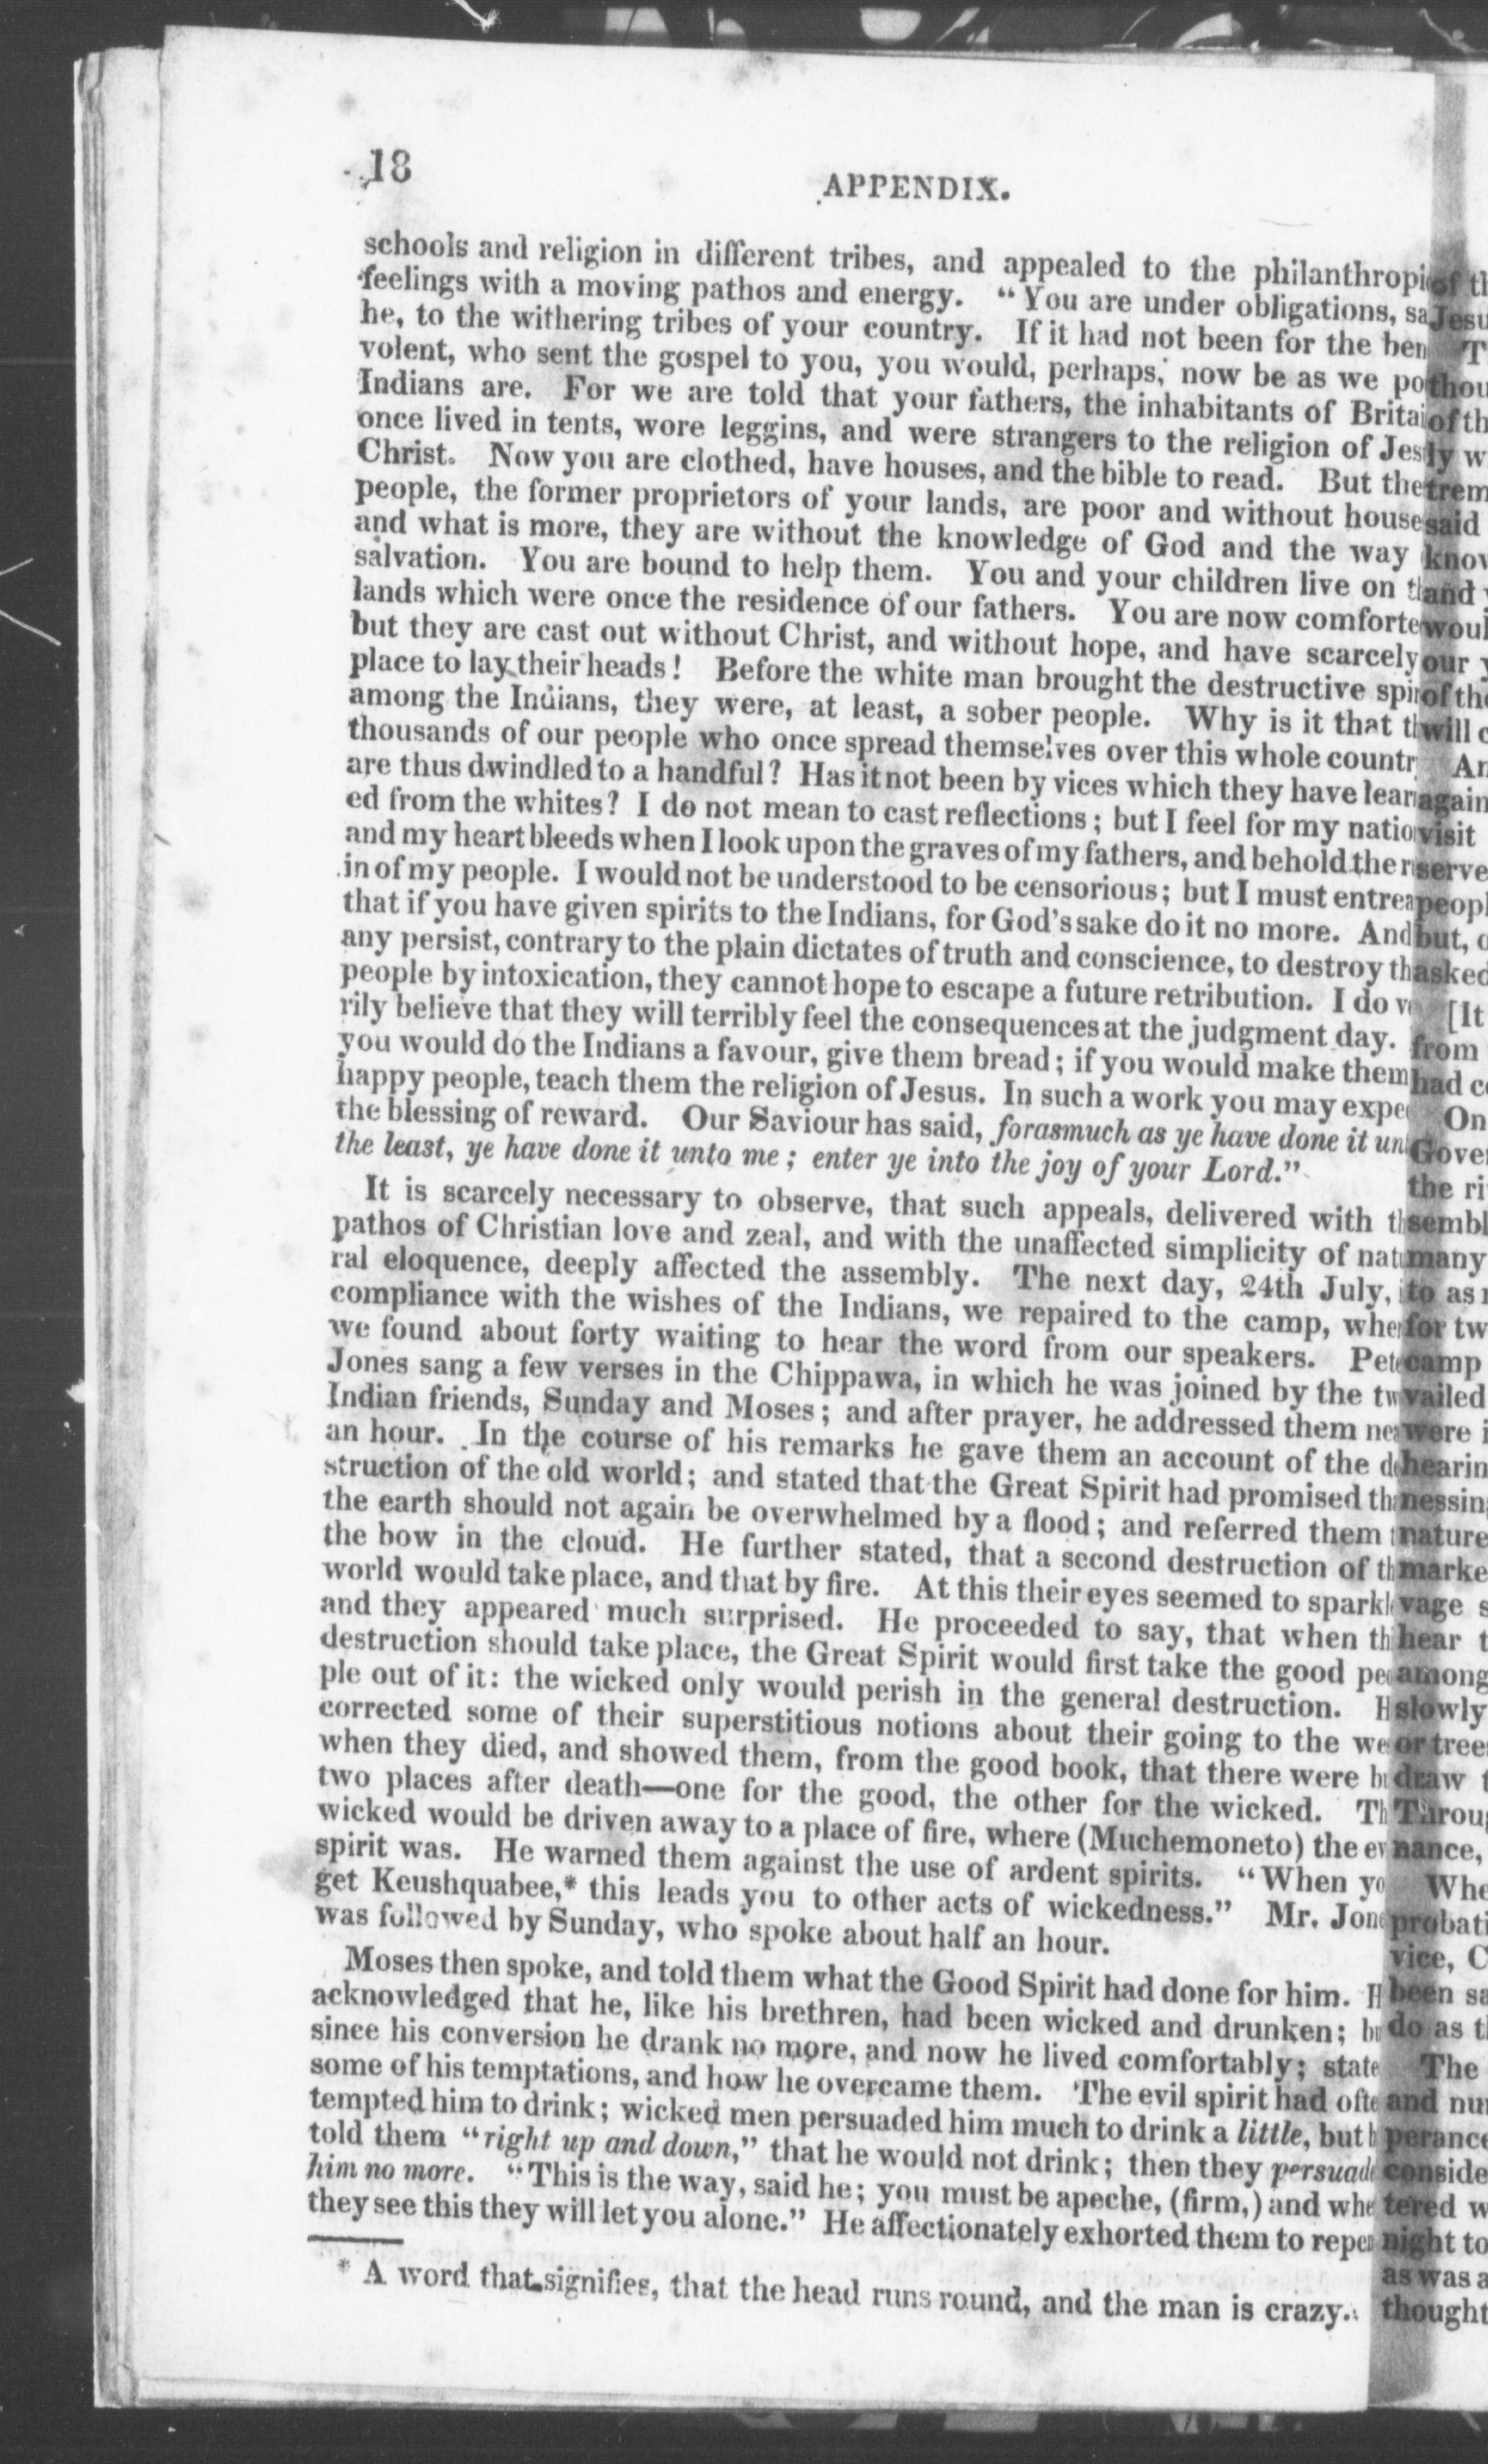 18
APPENDIX.
schools and religion in different tribes, and appealed to the philanthropi
feelings with a moving pathos and energy. "You are under obligations, sa
he, to the withering tribes of your country. If it had not been for the ben
volent, who sent the gospel to you, you would, perhaps, now be as we po
Indians are. For we are told that your fathers, the inhabitants of Britai
once lived in tents, wore leggins, and were strangers to the religion of Jes
Christ. Now you are clothed, have houses, and the bible to read. But the
people, the former proprietors of your lands, are poor and without house
and what is more, they are without the knowledge of God and the way
salvation. You are bound to help them. You and your children live on th
lands which were once the residence of our fathers. You are now comforte
but they are cast out without Christ, and without hope, and have scarcely
place to lay their heads! Before the white man brought the destructive spir
among the Indians, they were, at least, a sober people. Why is it that th
thousands of our people who once spread themselves over this whole countr
are thus dwindled to a handful? Has it not been by vices which they have lear
ed from the whites? I do not mean to cast reflections; but I feel for my natio
and my heart bleeds when I look upon the graves of my fathers, and behold the r
in of my people. I would not be understood to be censorious; but I must entrea
that if you have given spirits to the Indians, for God's sake do it no more. And
any persist, contrary to the plain dictates of truth and conscience, to destroy th
people by intoxication, they cannot hope to escape a future retribution. I do v
rily believe that they will terribly feel the consequences at the judgment day.
you would do the Indians a favour, give them bread; if you would make them
happy people, teach them the religion of Jesus. In such a work you may expe
the blessing of reward. Our Saviour has said, forasmuch as ye have done it un
the least, ye have done it unto me; enter ye into the joy of your Lord."
It is scarcely necessary to observe, that such appeals, delivered with th
pathos of Christian love and zeal, and with the unaffected simplicity of natu
ral eloquence, deeply affected the assembly. The next day, 24th July, i
compliance with the wishes of the Indians, we repaired to the camp, wher
we found about forty waiting to hear the word from our speakers. Pete
Jones sang a few verses in the Chippawa, in which he was joined by the tw
Indian friends, Sunday and Moses; and after prayer, he addressed them nea
an hour. In the course of his remarks he gave them an account of the de
struction of the old world; and stated that the Great Spirit had promised tha
the earth should not again be overwhelmed by a flood; and referred them t
the bow in the cloud. He further stated, that a second destruction of th
world would take place, and that by fire. At this their eyes seemed to sparkl
and they appeared much surprised. He proceeded to say, that when th
destruction should take place, the Great Spirit would first take the good peo
ple out of it: the wicked only would perish in the general destruction. H
corrected some of their superstitious notions about their going to the we
when they died, and showed them, from the good book, that there were bu
two places after death—one for the good, the other for the wicked. Th
wicked would be driven away to a place of fire, where (Muchemoneto) the ev
spirit was. He warned them against the use of ardent spirits. "When yo
get Keushquabee,* this leads you to other acts of wickedness." Mr. Jone
was followed by Sunday, who spoke about half an hour.
Moses then spoke, and told them what the Good Spirit had done for him. H
acknowledged that he, like his brethren, had been wicked and drunken; bu
since his conversion he drank no more, and now he lived comfortably; state
some of his temptations, and how he overcame them. The evil spirit had ofte
tempted him to drink; wicked men persuaded him much to drink a little, but h
told them "right up and down," that he would not drink; then they persuade
him no more. "This is the way, said he; you must be apeche, (firm,) and whe
they see this they will let you alone." He affectionately exhorted them to repen
* A word that signifies, that the head runs round, and the man is crazy.
of th
Jesu
T
thou
of th
ly w
trem
said
know
and
woul
our y
of the
will c
An
again
visit
serve
peopl
but, o
asked
[It
from
had c
On
Gover
the ri
sembl
many
to as
for tw
camp
vailed
were i
hearin
nessin
nature
marke
vage s
hear t
among
slowly
or tree
draw t
Throug
nance,
Whe
probati
vice, C
been sa
do as t
The
and nu
perance
conside
tered w
night to
as was a
thought